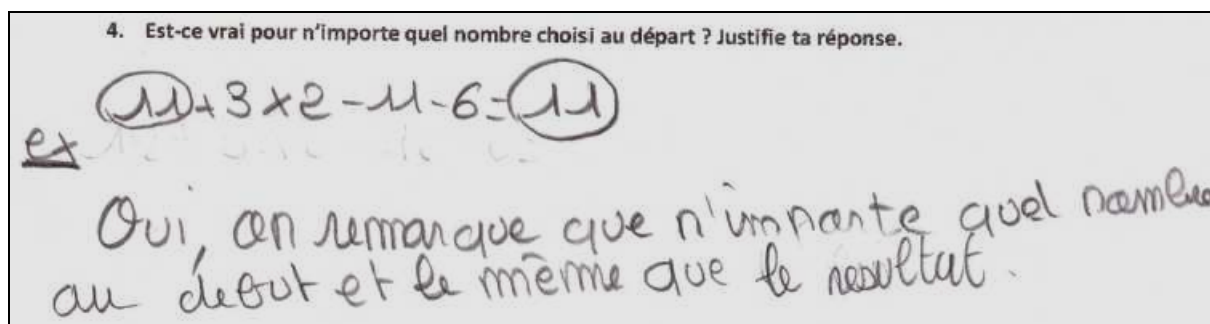 4. Est-ce vrai pour n'importe quel nombre choisi au départ ? Justifie ta réponse.
11+3×2-11-6=11
ex
Oui, on remarque que n'importe quel nombre
au debut et le même que le resultat.